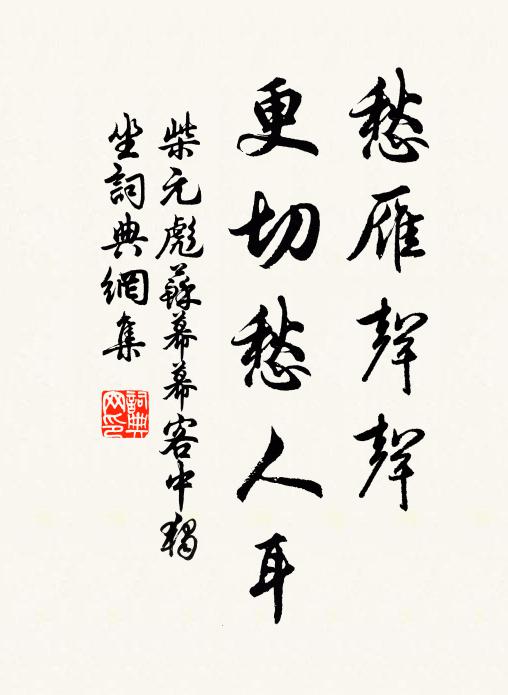 愁雁聲聲
更切愁人耳
柴元彪蘇幕幕客中獨
坐詞典網集
詞典网印